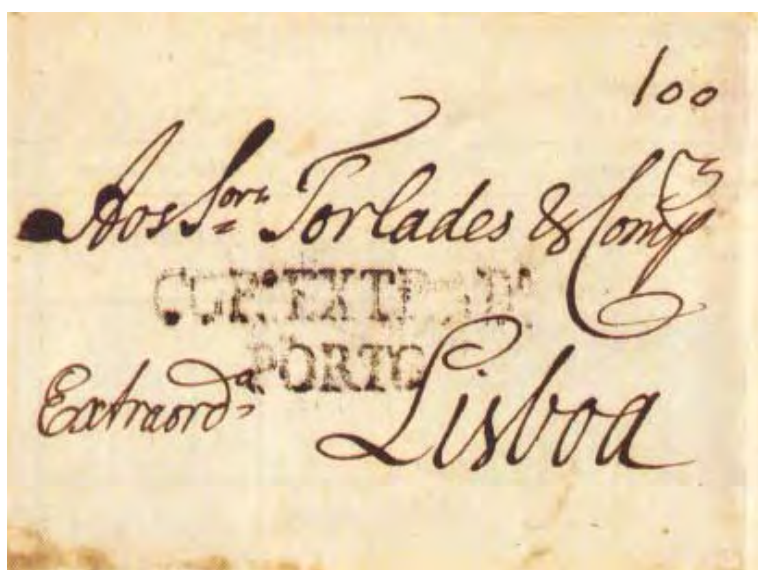 100
Aos Sors. Torlades & Comp.a
COR.EXTR.DR.º
PORTO
Extraord.a
Lisboa